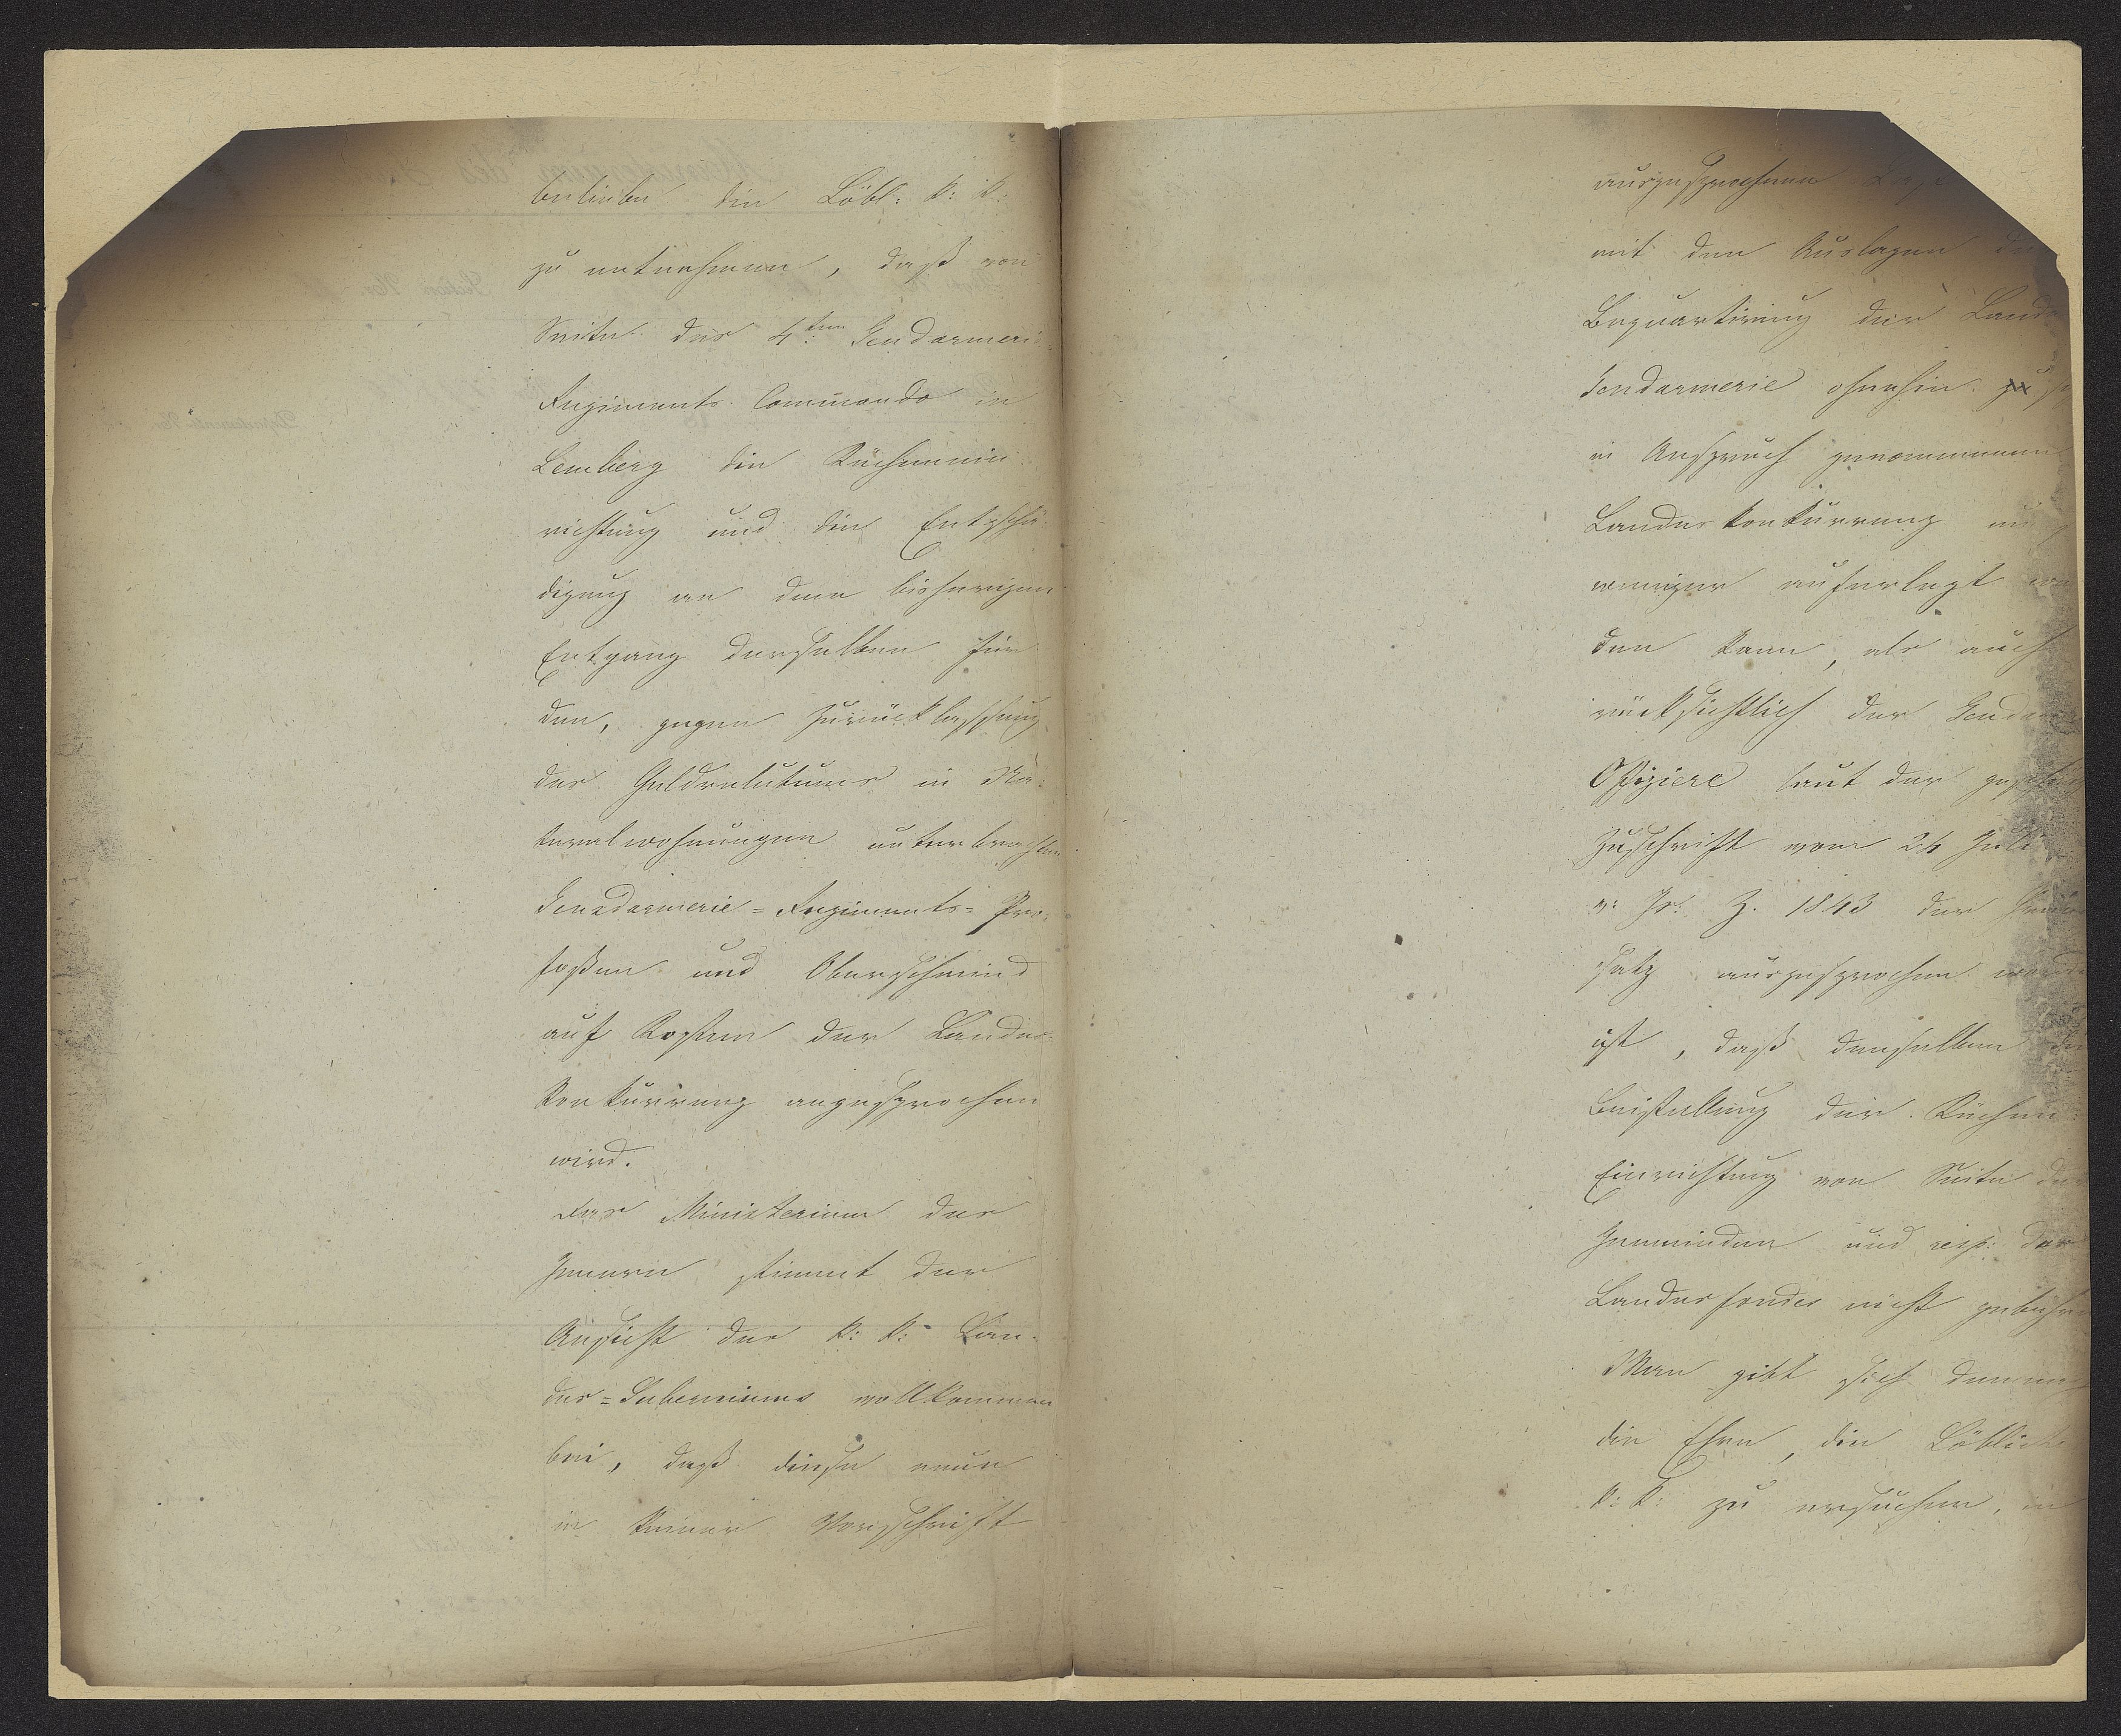 beliebe die Löbl: k: k:
zu entnehmen, daß von
Seite des 4:ten Gendarmerie
Regiments Commando in
Lemberg die Küchenein-
richtung und die Entschä-
digung an dem bisherigen
Entgang derselben für
den, gegen Zurücklassung
des Geldrelutums in Na-
turalwohnungen unterbrachten
Gendarmerie=Regiments=Pro-
foßen und Oberschmied
auf Kosten der Landes-
konkurrenz angesprochen
wird.
Das Ministerium des
Innern stimmt der
Ansicht des k: k: Lan-
des=Guberniums vollkommen
bei, daß diese neue
in keiner Vorschrift
ausgesprochene
mit den Auslagen
Bequartirung der Landes
Gendarmerie ohnehin
in Anspruch genommenen
Landeskonkurrenz
weniger auferlegt wer
den kann, als auch
rücksichtlich der Gendarm
Offiziere laut der
Zuschrift vom 24 Juli
v: Js: Z. 1843 der Grund
satz ausgesprochen worden
ist, daß denselben die
Beistellung der Küchen
Einrichtung von Seite der
Gemeinden und resp: des
Landesfondes nicht gebühre
Man gibt sich demnach
die Ehre, die Löbliche
k: k: zu ersuchen, in